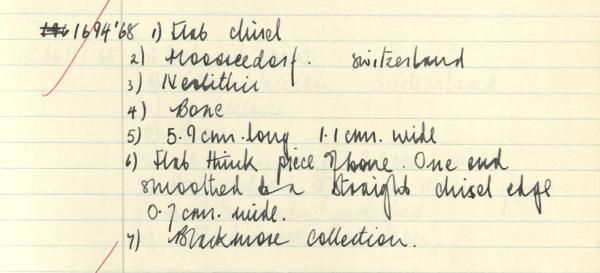 1694'68 1) Flat chisel
2) Moosseedorf. Switzerland
3) Neolithic
4) Bone
5) 5.9 cms. long 1.1 cms. wide
6) Flat thick piece of bone. One end
smoothed to a straight chisel edge
0.7 cms. wide.
7) Blackmore Collection.